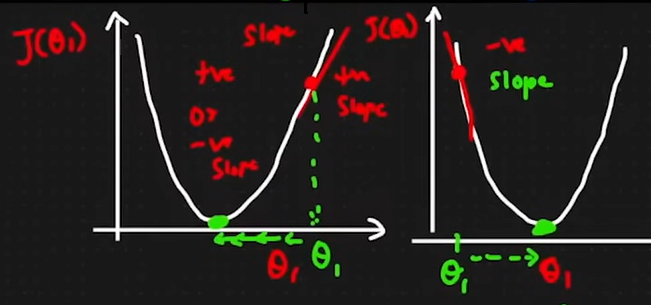 J(θ₁)
Slope
+ve
or
-ve
Slope
+ve
Slope
θ₁
θ₁
J(θ₁)
-ve
Slope
θ₁
θ₁